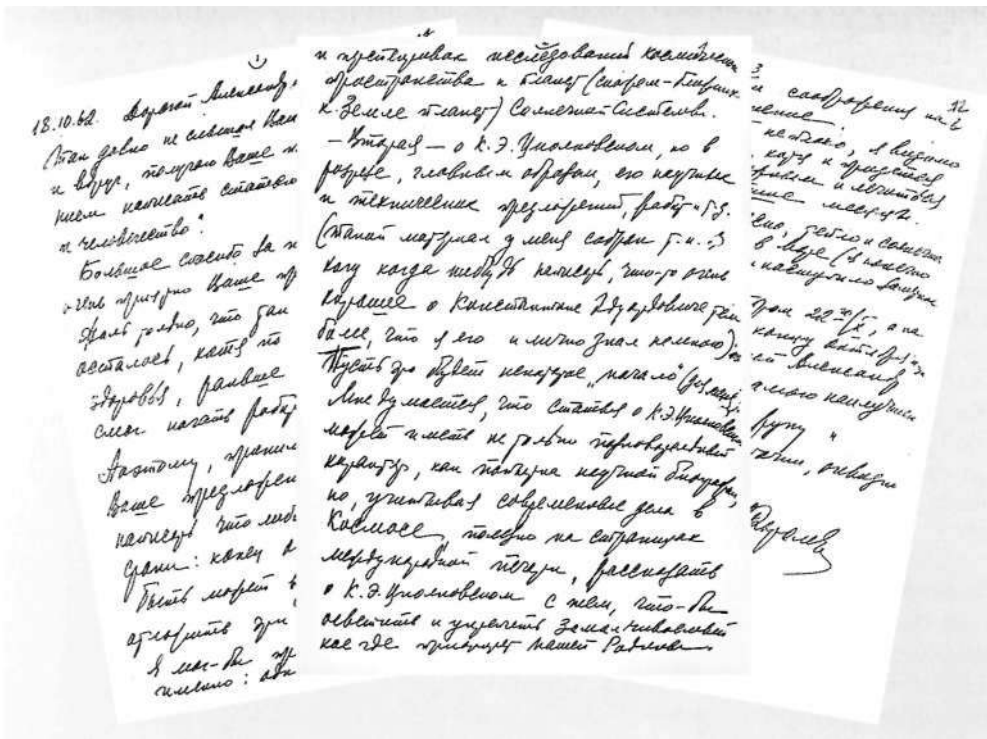 1
18.10.62. Дорогой Александр
Так давно не слышал Вас
и вдруг, получаю Ваше п
нием написать статью
и человечество".
Большое спасибо за п
очень признаю Ваше пр
Жаль только, что так
осталось, хотя по
здоровья, раньше
смог начать рабо
Поэтому, прини
Ваше предложен
написать что либ
сроки: конец
Быть может
отложить эти
Я мог-бы пр
именно: одн
2
и перспективах исследований космическ
пространства и планет (скорем - ближних
к Земле планет) Солнечной Системы.
— Вторая — о К.Э. Циолковском, но в
разрезе, главным образом, его научных
и технических предложений, работ и т.д.
(такой материал у меня собран т.к. я
хочу когда нибудь написать, что-то очень
хорошее о Константине Эдуардовиче тем
более, что я его и лично знал немного)
Пусть это будет некоторое „начало" (для меня
Мне думается, что статья о К.Э. Циолковском
может иметь не только познавательный
характер, как попытка научной биографии,
но, учитывая современные дела в
Космосе, полезно на страницах
международной печати, рассказать
о К.Э. Циолковском с тем, что-бы
осветить и укрепить замалчиваемый
кое где приоритет нашей Родины.
3
12
соображения на
нение.
я видимо
и придется
и лечиться
месяца.
тепло и солнечно
в море (я конечно
наступило
22го/X, а на
концу октября
Александр
самого наилучшего
руку
очевидно
Королев